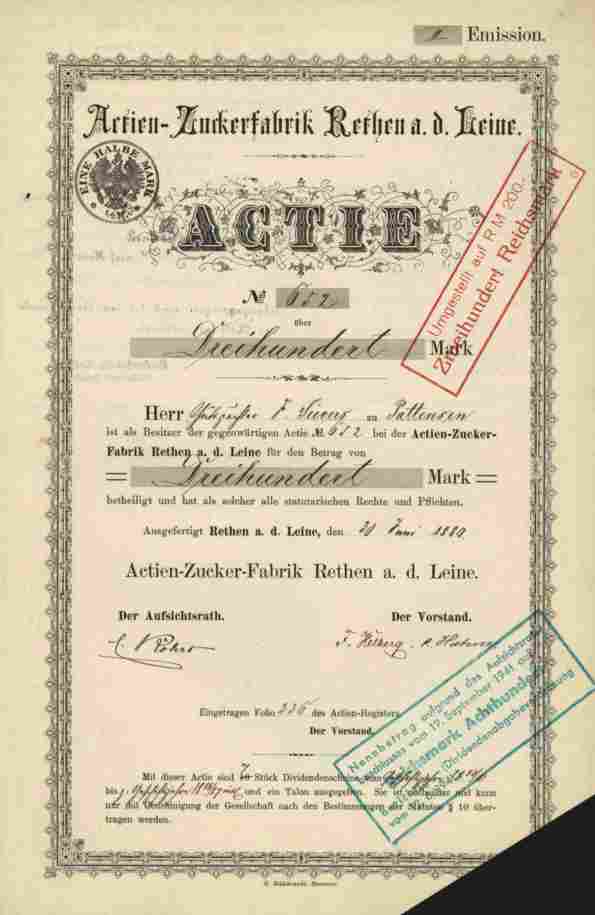 Emission.
Actien-Zuckerfabrik Rethen a. d. Leine.
EINE HALBE MARK
ACTIE
№ 652
über
Dreihundert Mark
Umgestellt auf R.M. 200.-
Zweihundert Reichsmark
Herr F. zu Pattensen
ist als Besitzer der gegenwärtigen Actie № 652 bei der Actien-Zucker-
Fabrik Rethen a. d. Leine für den Betrag von
Dreihundert Mark
betheiligt und hat als solcher alle statutarischen Rechte und Pflichten.
Ausgefertigt Rethen a. d. Leine, den 20 Juni 1880
Actien-Zucker-Fabrik Rethen a. d. Leine.
Der Aufsichtsrath.
Der Vorstand.
Eingetragen Folio 226 des Actien-Registers
Der Vorstand.
Nennbetrag aufgrund des Aufsichtsrats-
vom 19. September 1941 auf
Reichsmark Achthundert
Mit dieser Actie sind 7 Stück Dividendenscheine vom
bis und ein Talon ausgegeben. Sie ist und kann
nur mit Genehmigung der Gesellschaft nach den Bestimmungen der Statuten § 10 über-
tragen werden.